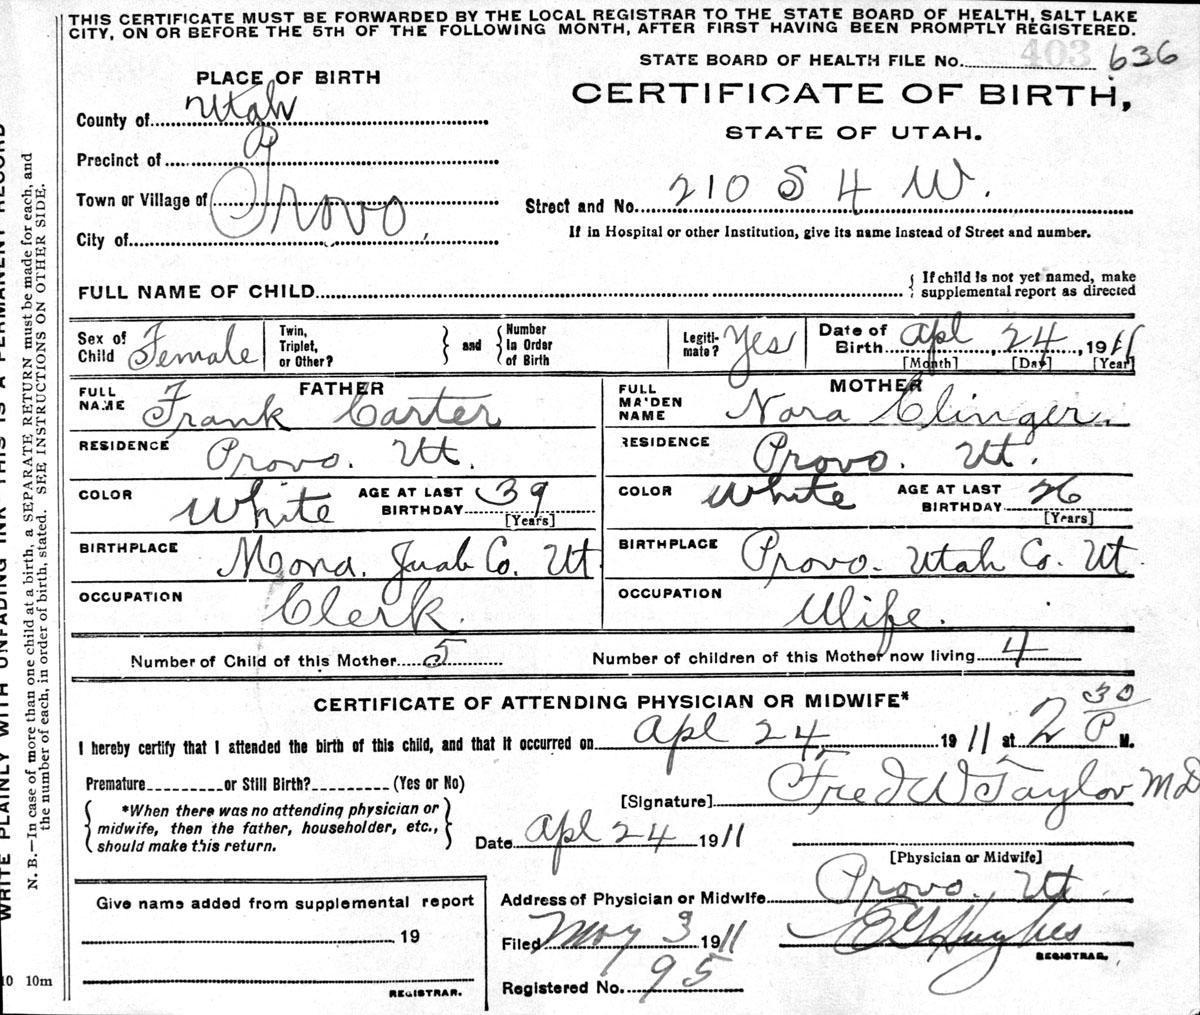 THIS CERTIFICATE MUST BE FORWARDED BY THE LOCAL REGISTRAR TO THE STATE BOARD OF HEALTH, SALT LAKE
CITY, ON OR BEFORE THE 5TH OF THE FOLLOWING MONTH, AFTER FIRST HAVING BEEN PROMPTLY REGISTERED.
403
STATE BOARD OF HEALTH FILE No. 636
PLACE OF BIRTH
CERTIFICATE OF BIRTH,
STATE OF UTAH.
County of Utah
Precinct of
Town or Village of Provo
City of
Street and No. 210 S 4 W.
If in Hospital or other Institution, give its name instead of Street and number.
FULL NAME OF CHILD
If child is not yet named, make
supplemental report as directed
Sex of Child Female
Twin, Triplet, or Other? and Number In Order of Birth
Legiti-mate? Yes
Date of Birth Apl 24 1911
[Month] [Day] [Year]
FATHER
FULL NAME Frank Carter
RESIDENCE Provo. Ut.
COLOR White AGE AT LAST BIRTHDAY 39 [Years]
BIRTHPLACE Mona. Juab Co. Ut
OCCUPATION Clerk.
MOTHER
FULL MAIDEN NAME Nora Clinger.
RESIDENCE Provo. Ut.
COLOR White AGE AT LAST BIRTHDAY 26 [Years]
BIRTHPLACE Provo. Utah Co. Ut
OCCUPATION Wife.
Number of Child of this Mother 5 Number of children of this Mother now living 4
CERTIFICATE OF ATTENDING PHYSICIAN OR MIDWIFE*
I hereby certify that I attended the birth of this child, and that it occurred on Apl 24 1911 at 2 30 P M.
Premature or Still Birth? (Yes or No)
*When there was no attending physician or
midwife, then the father, householder, etc.,
should make this return.
[Signature] Fred W Taylor MD
Date Apl 24 1911
[Physician or Midwife]
Address of Physician or Midwife Provo, Ut
Give name added from supplemental report
19
REGISTRAR.
Filed May 3 1911
Hughes
REGISTRAR.
Registered No. 95
WRITE PLAINLY WITH UNFADING INK—THIS IS A PERMANENT RECORD
N. B.—In case of more than one child at a birth, a SEPARATE RETURN must be made for each, and
the number of each, in order of birth, stated. SEE INSTRUCTIONS ON OTHER SIDE.
10 10m